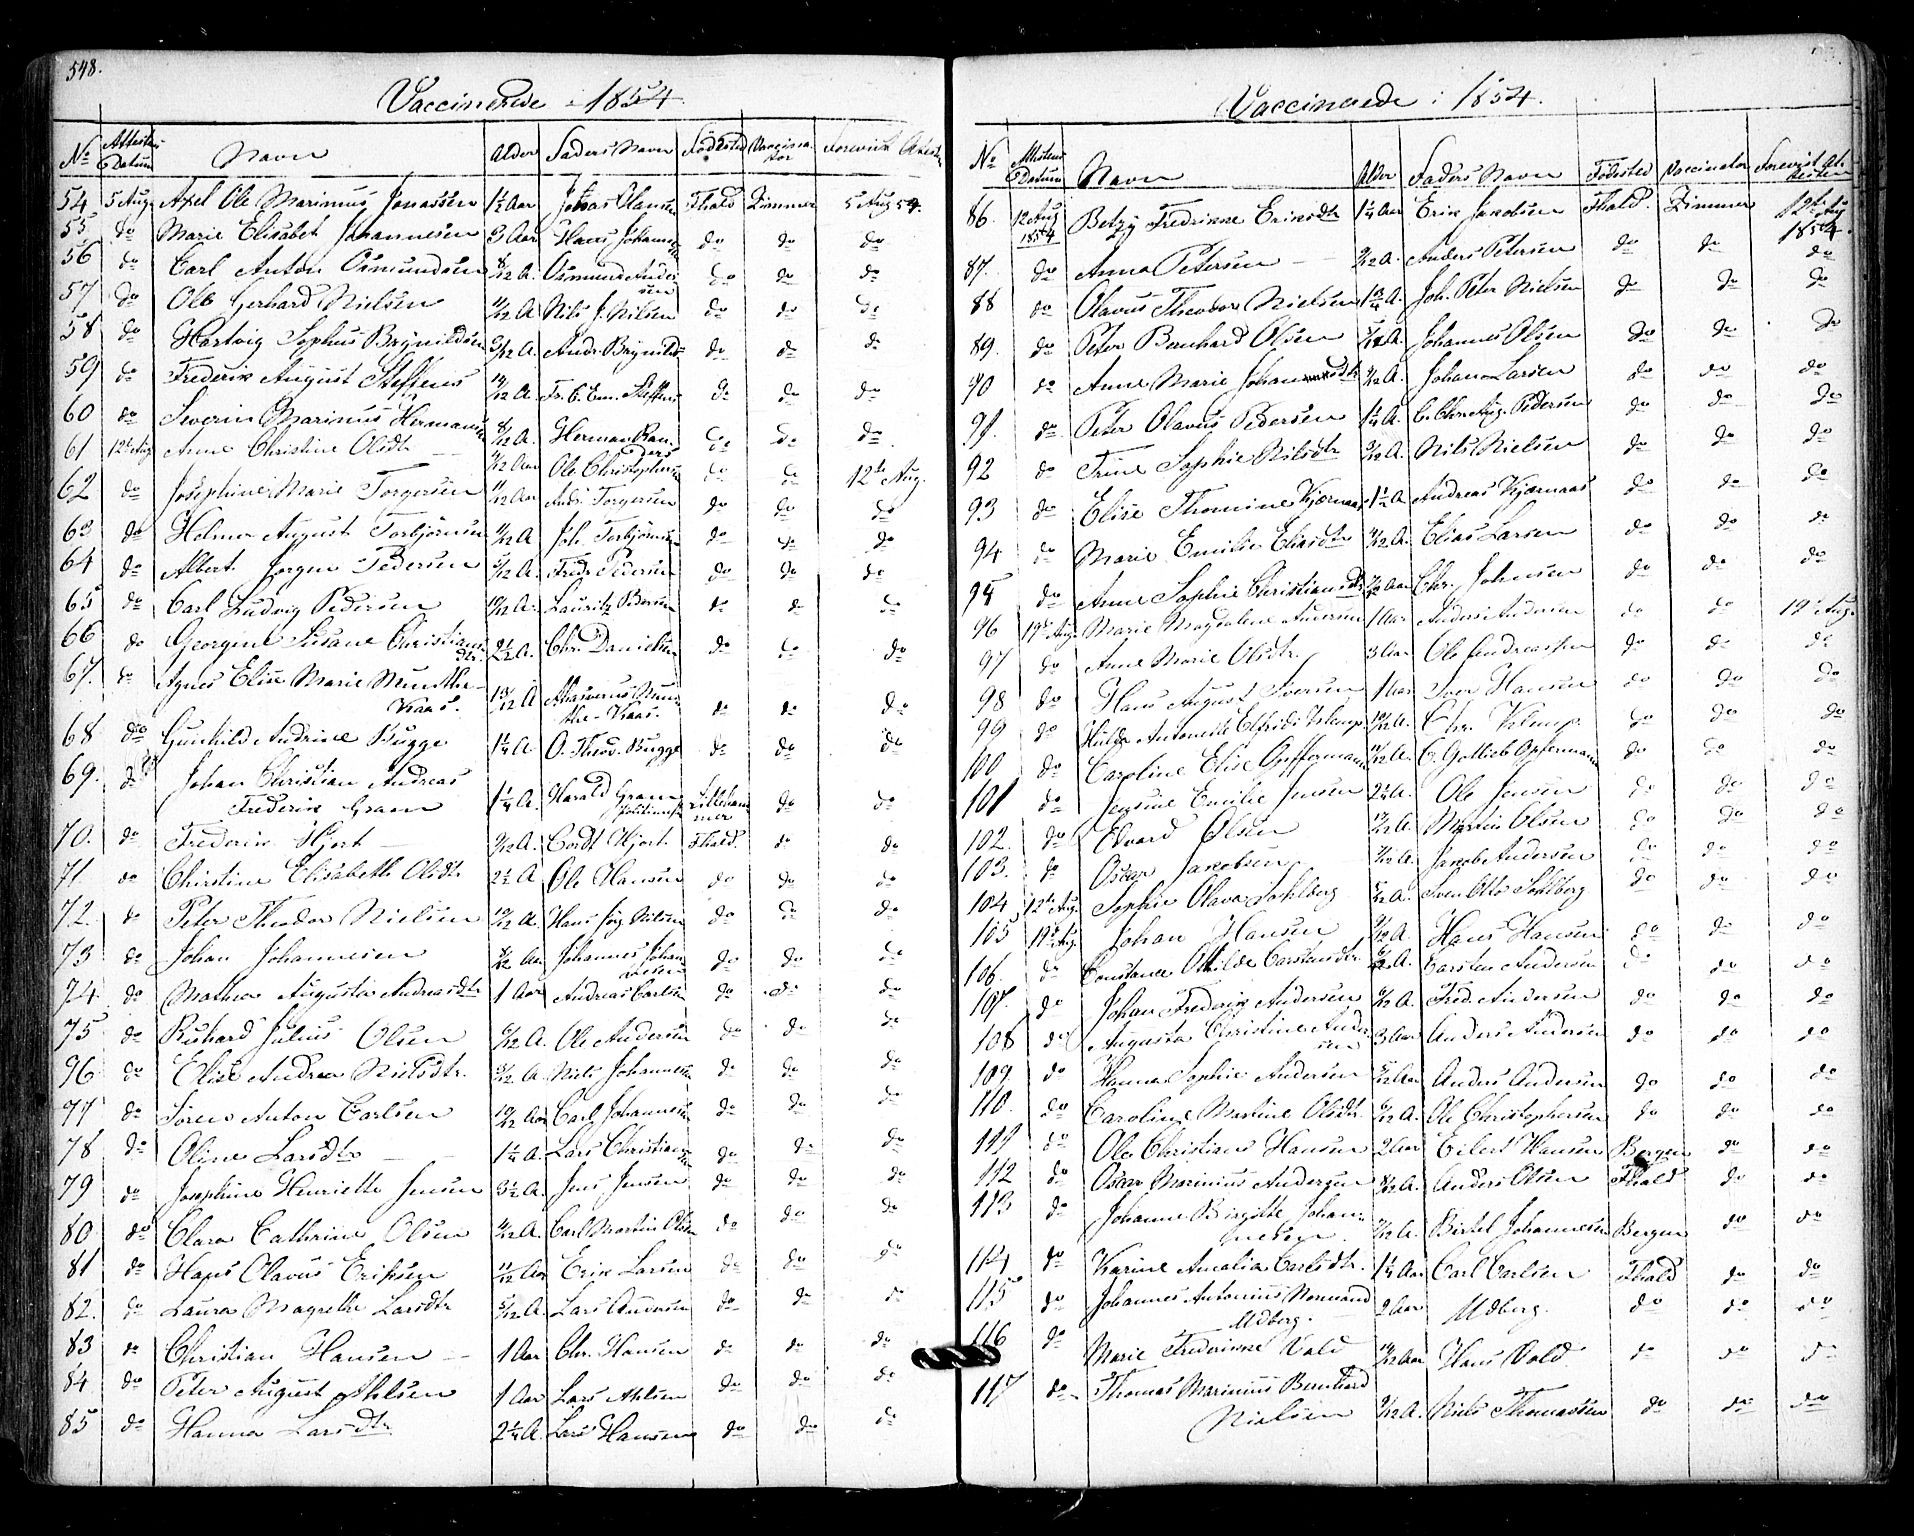 548.
Vaccinerede i 1854.
No Attestens Datum Navn Alder Faders Navn Fødested Vaccinator Forevist Attesten
54 5 Aug. Axel Ole Marinus Jonassen 1½ Aar Jonas Olausen Fhald Zimmer 5 Aug 54.
55 do Marie Elisabet Johannesen 3 Aar Hans Johannesen do do do
56 do Carl Anton Osmundsen 8/12 A. Osmund Andersen do do do
57 do Ole Gerhard Nielsen 11/12 A Nils J. Nilsen do do do
58 do Hartvig Sophus Brynildsen 3/12 A. Andr. Brynilds. do do do
59 do Frederik August Steffens 10/12 A. Fr. C. Em. Steffens do do do
60 do Severin Marinus Hermansen 8/12 A. Herman Ran- do do do
61 12te Aug. Anne Christine Olsdtr 4/12 Aar Ole Christophersen do do 12te Aug.
62 do Josephine Marie Torgersen 11/12 Aar Andr. Torgersen do do do
63 do Helmer August Torbjørnsen 11/12 A Joh. Torbjørnsen do do do
64 do Albert Jørgen Pedersen 5/12 A. Fredr Pedersen do do do
65 do Carl Ludvig Pedersen 10/12 A. Lauritz Pedersen do do do
66 do Georgine Susane Christians-
dtr. 2½ A. Chr. Danielsen do do do
67. do Agnes Elise Marie Munthe-
Kaas. 1 A Ahasverus Mun-
the-Kaas. do do do
68 do Gunhild Andrine Bugge 1¼ A O. Theod. Bugge do do do
69. do Johan Christian Andreas
Frederik Gram 1¼ A. Harald Gram Lilleham-
mer do do
70. do Frederik Hjort 9/12 A. Cordt Hjort. Fhald. do do
71. do Christine Elisabeth Olsdtr 2½ A Ole Hansen do do do
72. do Peter Theodor Nielsen 10/12 A. Hans Jørg. Nilsen do do do
73 do Johan Johannesen 8/12 Aar Johannes Johan-
nesen do do do
74. do Mathea Augusta Andreasdtr 1 Aar Andreas Carlsen do do do
75 do Richard Julius Olsen 6/12 A. Ole Andersen do do do
96. do Elise Andrea Nielsdtr. 5/12 A. Niels Johannesen do do do
77 do Søren Anton Carlsen 10/12 Aar Carl Johannesen do do do
78 do Oline Larsdtr 1¼ A. Lars Christiansen do do do
79 do Josephine Henriette Jensen 3½ A. Jens Jensen do do do
80 do Clara Cathrine Olsen 4/12 A. Carl Martin Olsen do do do
81 do Hans Olavus Eriksen 11/12 Aar Erik Larsen do do do
82. do Laura Magrethe Larsdtr 5/12 A. Lars Andersen do do do
83 do Christian Hansen 1 Aar Chr. Hansen do do do
84 do Peter August Ahlsen 1 Aar Lars Ahlsen do do do
85 do Hanna Larsdtr 2¼ A. Lars Hansen do do do
Vaccinerede i 1854.
No Attestens Datum Navn Alder Faders Navn Fødested Vaccinator Forevist Attesten
86. 12 Aug 1854 Betzy Fredrikke Eriksdtr 1¼ Aar Erik Jacobsen Fhald. Zimmer 12te Aug 1854.
87. do Anna Petersen 9/12 A. Anders Petersen do do do
88 do Olavus Theodor Nielsen 1¾ A. Joh. Peter Nielsen do do do
89. do Peter Bernhard Olsen 5/12 A. Johannes Olsen do do do
90 do Anne Marie Johansdtr 9/12 A. Johan Larsen do do do
91. do Peter Olavus Pedersen 1¼ A. C. Chr. Aug. Pedersen do do do
92 do Trine Sophie Nilsdtr 3/12 A. Nils Nielsen do do do
93 do Elise Thomine Kjærnaas 1½ A. Andreas Kjærnaas do do do
94 do Marie Emilie Eliasdtr 11/12 A. Elias Larsen do do do
95 do Anne Sophie Christiansdtr 7/12 Aar Chr. Johnsen do do do
96 19de Aug. Marie Magdalene Andersen 1 Aar Anders Andersen do do 19de Aug.
97 do Anne Marie Olsdtr. 3 Aar Ole Andreassen do do do
98 do Hans August Iversen 1 Aar Iver Hansen do do do
99 do Hulda Antonette Elfride 10/12 A. Chr. do do do
100 do Caroline Elise Opffermann 11/12 A. C. Gottlieb Opfermann do do do
101 do Jensine Emilie Jensen 2¼ A. Ole Jensen do do do
102. do Edvard Olsen 10/12 A. Martin Olsen do do do
103. do Oscar Jacobsen 7/12 A. Jacob Andersen do do do
104 12te Aug. Sophie Olava Sohlberg 5/12 A. Sven Otto Sohlberg do do do
105 19de Aug. Johan Hansen 9/12 A. Hans Hansen do do do
106. do Constance Othilde Carstensdtr 6/12 A. Carsten Andersen do do do
107. do Johan Frederik Andersen 6/12 A. Fred. Andersen do do do
108 do Augusta Christine Ander-
sen 3 Aar Anders Andersen do do do
109. do Hanna Sophie Andersen 5/12 Aar Anders Andersen do do do
110. do Caroline Martine Olsdtr. 6/12 A. Ole Christophersen do do do
111 do Ole Christians Hansen 2 Aar Eilert Hansen Bergen do do
112 do Oscar Marinius Andersen 8/12 A. Anders Olsen Fhald do do
113 do Johanne Birgitte Johan-
nesen. 7/12 A. Bertel Johannesen Bergen do do
114 do Karine Amalia Carlsdtr. 1¼ Aar Carl Carlsen Fhald do do
115 do Johannes Antonius Normand
Udberg. 2 Aar Udberg. do do do
116 do Marie Fredrikke Vold 10/12 Aar Hans Vold do do do
117 do Thomas Marinius Bernhard
Nielsen 9/12 A. Niels Thomassen do do do